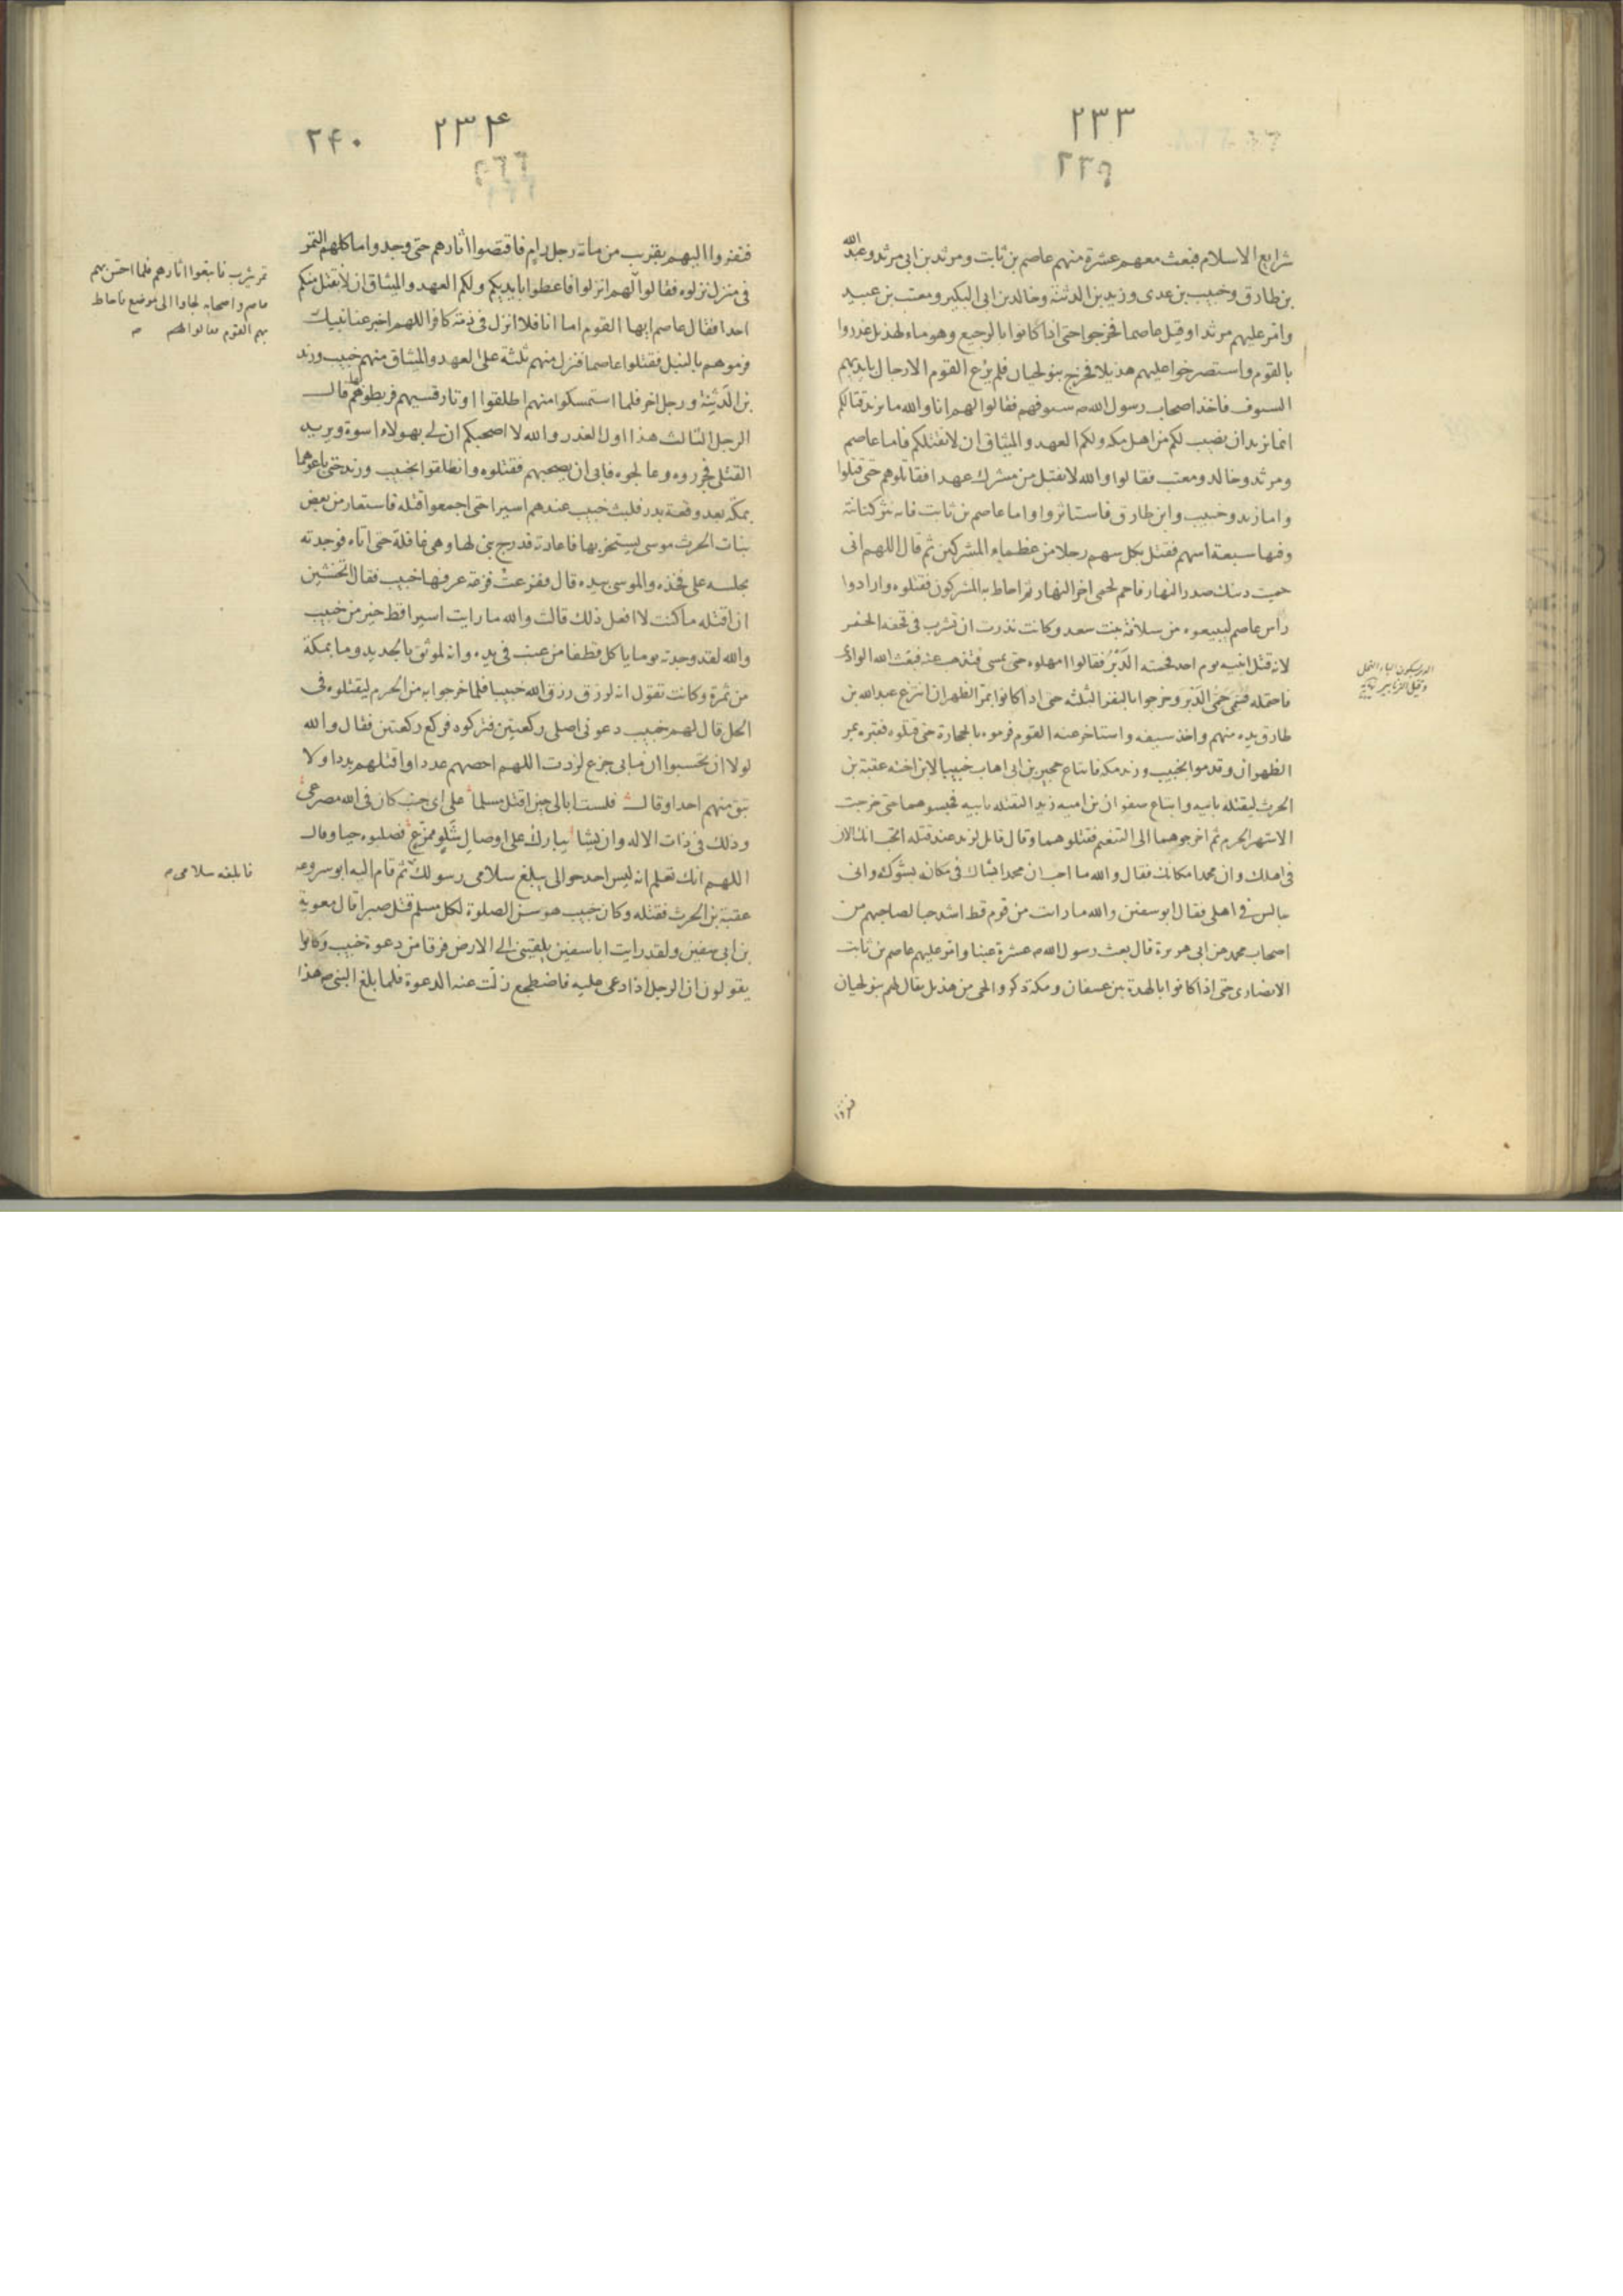 ٢٣٣
٢٣٩
شرايع الاسلام فبعث معهم عشرة منهم عاصم بن ثابت ومرثد بن ابى مرثد وعبد الله
بن طارق وخبيب بن عدى وزيد بن الدثنة وخالد بن ابى البكير ومعتب بن عبيد
وامر عليهم مرثدا وقيل عاصما فخرجوا حتى اذا كانوا بالرجيع وهو ماء لهذيل غدروا
بالقوم واستصرخوا عليهم هذيلا فخرج بنو لحيان فلم يرع القوم الا رجال بايديهم
السيوف فاخذ اصحاب رسول الله ص سيوفهم فقالوا لهم انا والله ما نريد قتالكم
انما نريد ان نصيب لكم من اهل مكه ولكم العهد والميثاق ان لا نقتلكم فاما عاصم
ومرثد وخالد ومعتب فقالوا والله لا نقبل من مشرك عهدا فقاتلوهم حتى قتلوا
واما زيد وخبيب وابن طارق فاستاثروا واما عاصم بن ثابت فانه نثر كنانته
وفيها سبعة اسهم فقتل بكل سهم رجلا من عظماء المشركين ثم قال اللهم انى
حميت دينك صدر النهار فاحم لحمى اخر النهار ثم احاط به المشركون فقتلوه وارادوا
راس عاصم ليبيعوه من سلافة بنت سعد وكانت نذرت ان تشرب فى قحفه الخمر
لانه قتل ابنيه يوم احد فحمته الدَبْرُ فقالوا امهلوه حتى يمسى فتذهب عنه فبعث الله الوادى
فاحتمله فسمى حَمِى الدَبْر وخرجوا بالنفر الثلثه حتى اذا كانوا بمر الظهران انتزع عبدالله بن
طارق يده منهم واخذ سيفه واستاخر عنه القوم فرموه بالحجارة حتى قتلوه فقبره بمر
الظهران وقدموا بخبيب وزيد مكه فابتاع حجير بن ابى اهاب خبيبا لابن اخته عقبة بن
الحرث ليقتله بابيه وابتاع صفوان بن اميه زيدا ليقتله بابيه فحبسوهما حتى خرجت
الاشهر الحرم ثم اخرجوهما الى التنعيم فقتلوهما وقال قائل لزيد عند قتله اتحب انك الان
فى اهلك وان محمدا مكانك فقال والله ما احب ان محمدا يشاك فى مكانه بشوكة وانى
جالس فى اهلى فقال ابو سفين والله ما رايت من قوم قط اشد حبا لصاحبهم من
اصحاب محمد عن ابى هريرة قال بعث رسول الله ص عشرة عينا وامر عليهم عاصم بن ثابت
الانصارى حتى اذا كانوا بالهدة بين عسفان ومكة ذكروا لحى من هذيل يقال لهم بنو لحيان
الدبر بسكون الباء النحل
وقيل الزنابير نهاية
فنفروا
٢٣۴
٢۴٠
فنفروا اليهم بقرب من مأته رجل رام فاقتصوا اثارهم حتى وجدوا ماكلهم التمر
فى منزل نزلوه فقالوا لهم انزلوا فاعطوا بايديكم ولكم العهد والميثاق ان لا نقتل منكم
احدا فقال عاصم ايها القوم اما انا فلا انزل فى ذمة كافر اللهم اخبر عنا نبيك
فرموهم بالنبل فقتلوا عاصما فنزل منهم ثلثة على العهد والميثاق منهم خبيب وزيد
بن الدثنة ورجل اخر فلما استمسكوا منهم اطلقوا اوتار قسيهم فربطوهم بها قال
الرجل الثالث هذا اول الغدر والله لا اصحبكم ان لى بهولاء اسوة ويريد
القتلى فجرروه وعالجوه فابى ان يصحبهم فقتلوه وانطلقوا بخبيب وزيد حتى باعوهما
بمكه بعد وقعة بدر فلبث خبيب عندهم اسيرا حتى اجمعوا قتله فاستعار من بعض
بنات الحرث موسى يستحد بها فاعارته فدرج بنى لها وهى غافلة حتى اتاه فوجدته
مجلسه على فخذه والموسى بيده قال ففزعت فزعة عرفها خبيب فقال اتخشين
ان اقتله ما كنت لا افعل ذلك قالت والله ما رايت اسيرا قط خير من خبيب
والله لقد وجدته يوما ياكل قطفا من عنب فى يده وانه لموثق بالحديد وما بمكة
من ثمرة وكانت تقول انه لرزق رزق الله خبيبا فلما خرجوا به من الحرم ليقتلوه فى
الحل قال لهم خبيب دعونى اصلى ركعتين فتركوه فركع ركعتين فقال والله
لولا ان تحسبوا ان ما بى جزع لزدت اللهم احصهم عددا واقتلهم بددا ولا
تبق منهم احدا وقال فلست ابالى حين اقتل مسلما على اى جنب كان فى الله مصرعى
وذلك فى ذات الاله وان يشأ يبارك على اوصال شلو ممزع فصلبوه حيا وقال
اللهم انك تعلم انه ليس احد حوالى يبلغ سلامى رسولك ثم قام اليه ابو سروعه
عقبة بن الحرث فقتله وكان خبيب هو سن الصلوة لكل مسلم قتل صبرا قال معوية
بن ابى سفين ولقد رايت ابا سفين يلقينى الى الارض فرقا من دعوة خبيب وكانوا
يقولون ان الرجل اذا دعى عليه فاضطجع زلت عنه الدعوة فلما بلغ النبى ص هذا
تمر يثرب فاتبعوا اثارهم فلما احس بهم
عاصم واصحابه لجاوا الى موضع فاحاط
بهم القوم فقالوا لهم
فابلغه سلامى